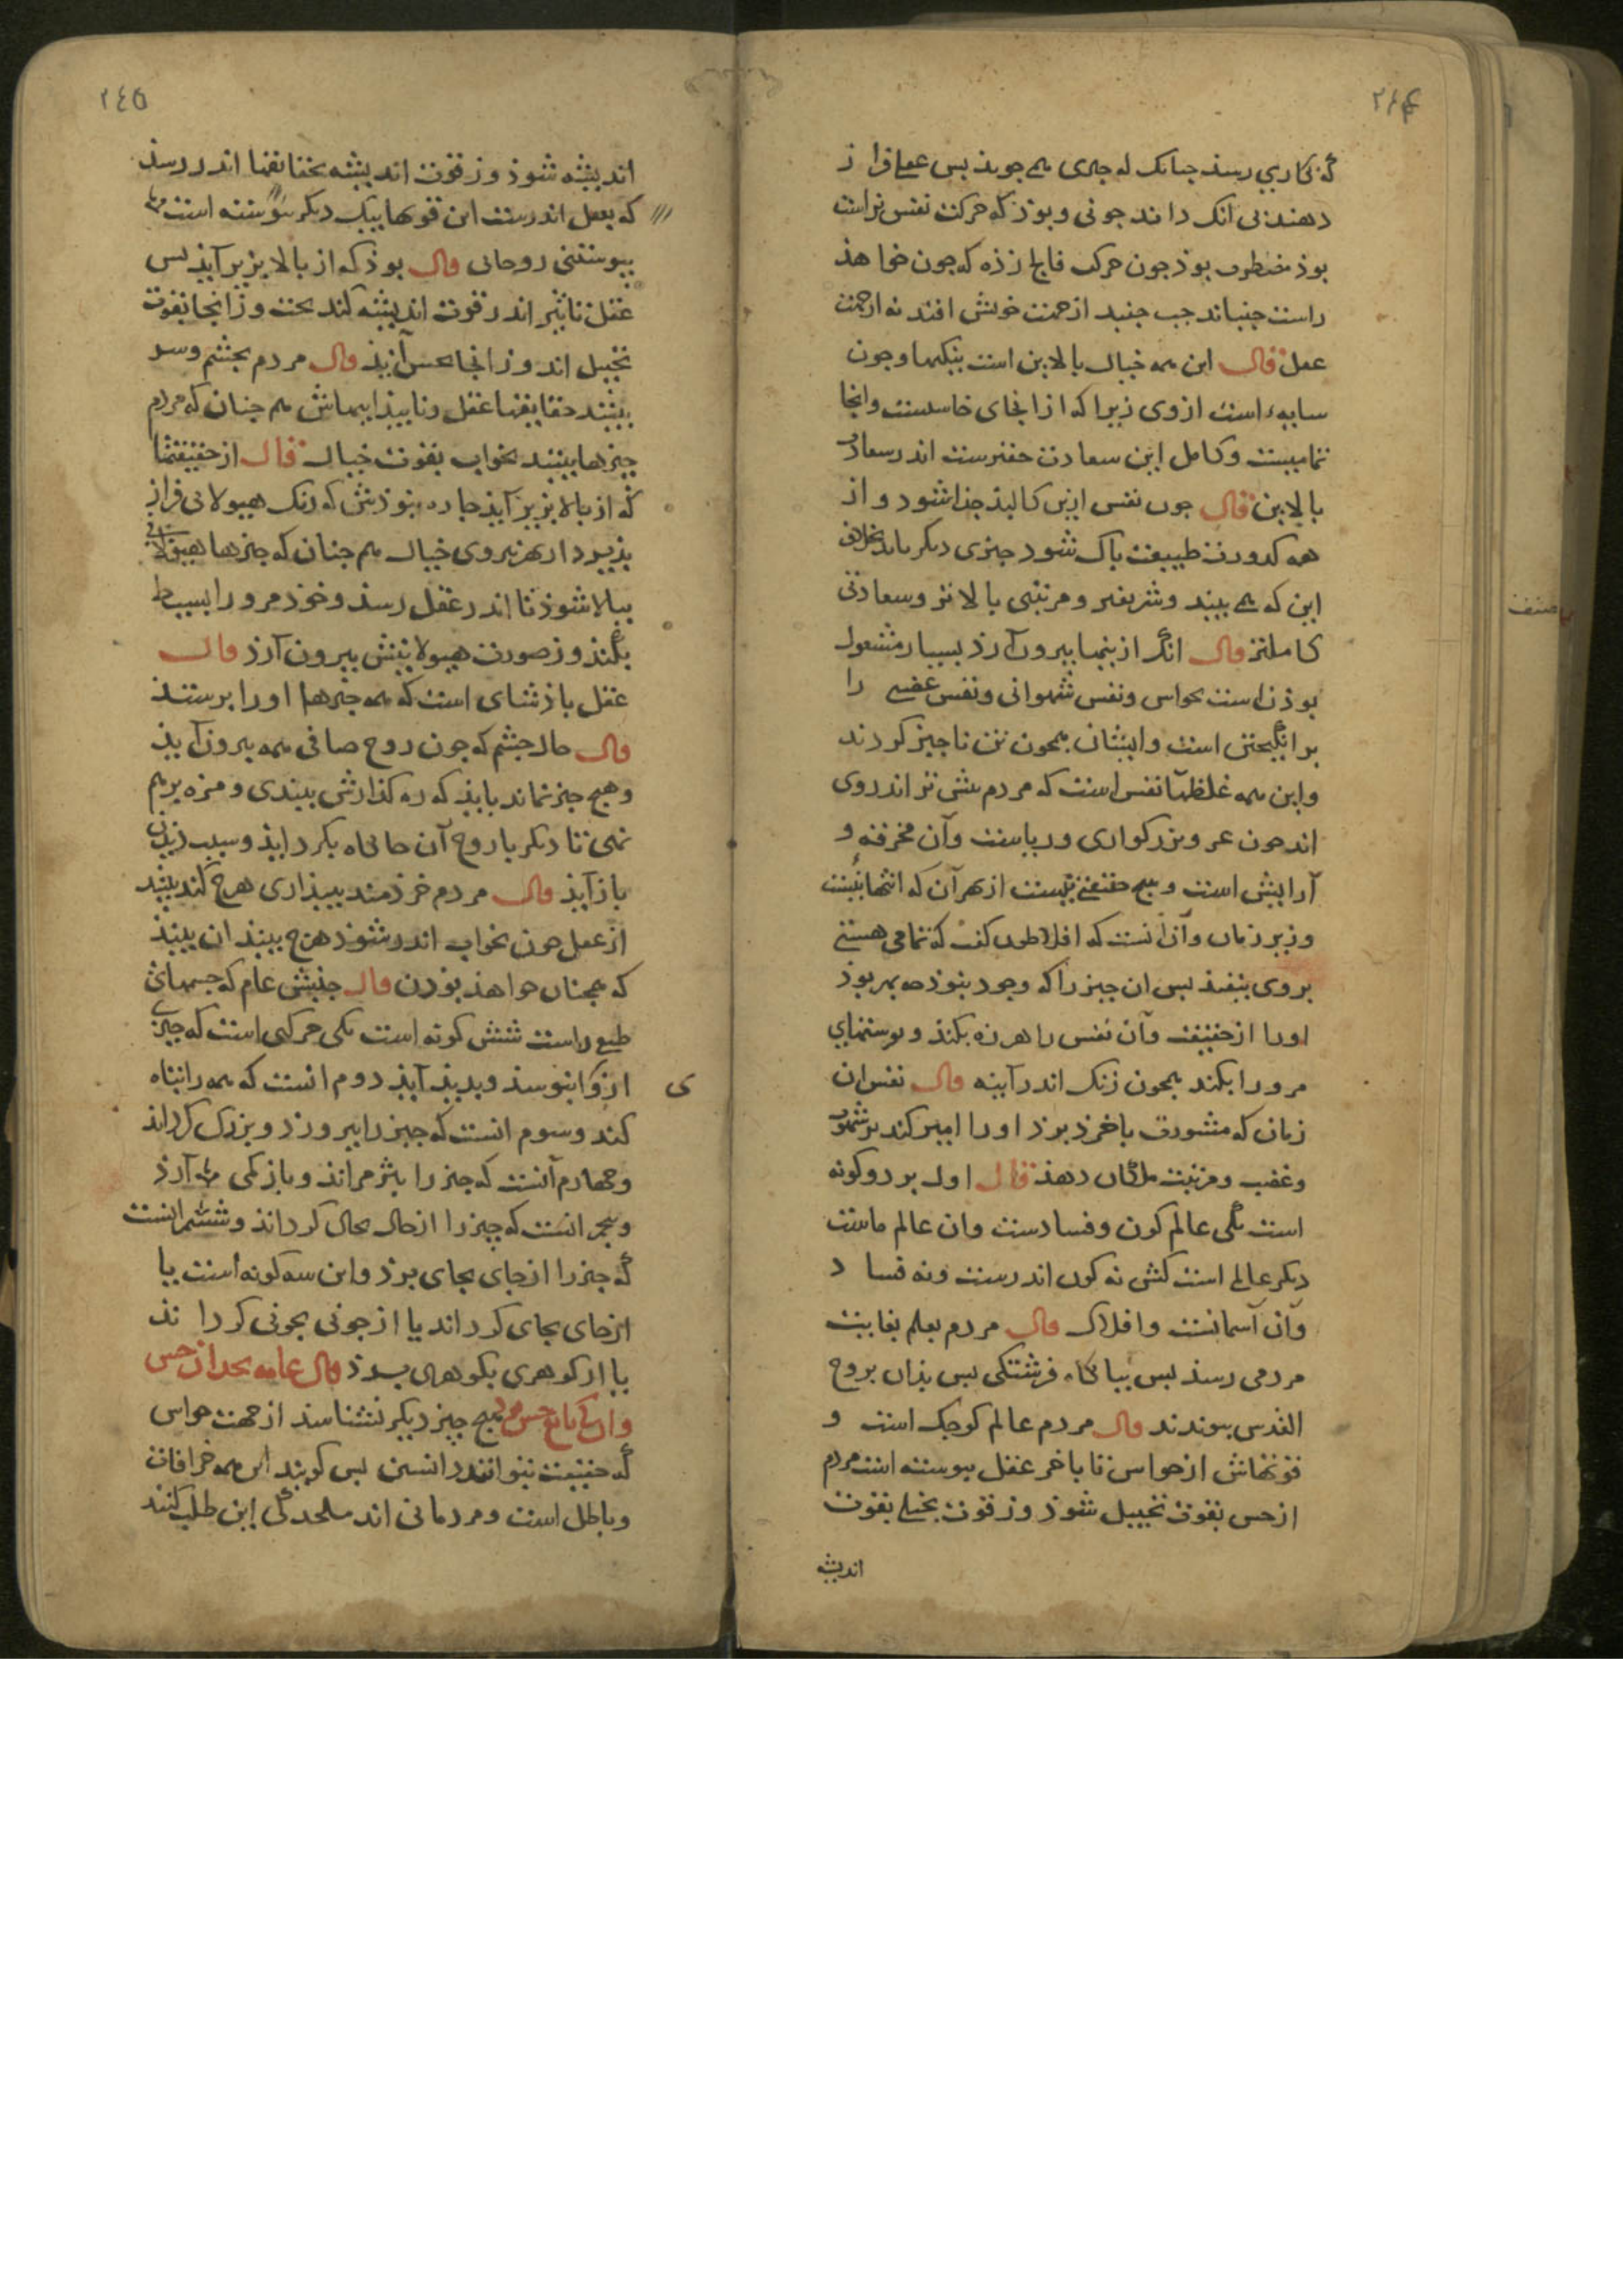 ٢٤٤
که بکاری رسذ چنانک له چیزی همی جویذ بس عقل فراز
دهندنی انک داند چونی و بوذ که حرکت نفس نراست
بوذ مضطرب بوذ چون حرکت فالج زذه که چون خواهذ
راست جنباند جب جنبد از جهت خویش افتد نه از جهت
عقل قال این همه خیال بالایین است بنکیها و چون
سایهء است از وی زیرا که از انجای خاسست و انجا
تمامیست و کامل این سعادت حقیرست اندر سعادت
بالایین قال جون نفس ازین کالبذ جذا شود و از
همه کدورت طبیعت باک شود چیزی دیکر یابذ بخلاف
این که همی بیند و شریفتر و مرتبتی بالاتر و سعادتی
کاملتر قال انک از تنها بیرون آرذ بسیار مشغول
بوذن است بحواس و نفس شهوانی و نفس غضبی را
برانگیختن است و ایشان همچون تن ناچیز کردند
و این همه غلظها نفس است که مردم بیش تر اندر وی
اند چون عز و بزرکواری و ریاست و آن مخرفه و
آرایش است و هیچ حقیقتی نیست از هر آن که انتها نیست
و زیر زمان و آن آنست که افلاطون کفت که تمامی هستی
بر وی نیفتذ بس ان چیز را که وجود نبوذ مه بهر بوذ
اورا از حقیقت و آن نفس را هرزه بکند و بوستهای
مر ورا بکند همچون زنک اندر آینه قال نفس ان
زمان که مشورت با خرد برد اورا امیر کند بر شهوت
و غضب و مرتبت ملکان دهذ قال اول بر دو کونه
است یکی عالم کون و فسادست وان عالم ماست
دیکر عالم است کش نه کون اندرست و نه فساد
وآن آسمانست و افلاک قال مردم بعلم بغایت
مردمی رسذ بس ببایکاه فرشتکی بس بذان بروح
القدس بیوندند قال مردم عالم کوچک است و
قوتهاش از حواس تا باخر عقل بیوسته است مردم
از حس بقوت تخییل شوذ وز قوت تخیل بقوت
اندیشه
٢٤٥
اندیشه شوذ وز قوت اندیشه بحقایقها اندر رسذ
که بعقل اندرست این قوها بیک دیکر بیوسته است
بیوستنی روحانی قال بوذ که از بالا بزیر آیذ بس
عقل تاثیر اندر قوت اندیشه کند بحت وز انجا بقوت
تخییل اند وز انجا بحس آیذ قال مردم بچشم و سر
بینند حقایقها عقل و نابیذاییهاش هم چنان که مردم
چیزها بینند بخواب بقوت خیال قال از حقیقتها
که از بالا بزیر آیذ چاره نبوذش که رنک هیولانی فراز
بذیرد از بهر نیروی خیال هم چنان که چیزها هیولانی
ببالا شوذ تا اندر عقل رسذ و خوذ مر ورا بسیط
بکند وز صورت هیولانیش بیرون آرذ قال
عقل باذشای است که همه چیزها اورا برستند
قال حال چشم که چون روح صافی همه بیرون آیذ
و هیچ چیز نماند بایذ که ره کذارش ببندی و مزه برهم
نهی تا دیکر باروح آن جایکاه بکرد ایذ و سبب زین
باز آیذ قال مردم خرذمند ببیذاری هرچ کند بیند
از عقل چون بخواب اندر شوذ هرچ بیند ان بیند
که همچنان خواهذ بوذن قال جنبش عام که جسمهای
طبع راست شش کونه است یکی حرکتی است که چیزی
از وی ابتوسذ و بدید آیذ دوم انست که همه را بتاه
کند و سوم انست که چیز را ببرورذ و بزرک کرداند
و چهارم آنست که چیز را بثرمراند و باز کمی آرذ
و بنجم انست که چیز را از حال بحال کرداند و ششم انست
که چیز را از جای بجای برذ و این سه کونه است یا
از جای بجای کرداند یا از چونی بچونی کرداند
یا از کوهری بکوهری برذ قال عامه بجز از حس
وان که تابع حس بوذ هیچ چیز دیکر نشناسد از جهت حواس
که حقیقت نتوانند دانستن بس کویند این همه خرافات
و باطل است و مردمانی اند ملحد کی این طلب کنند
ی
مصنف